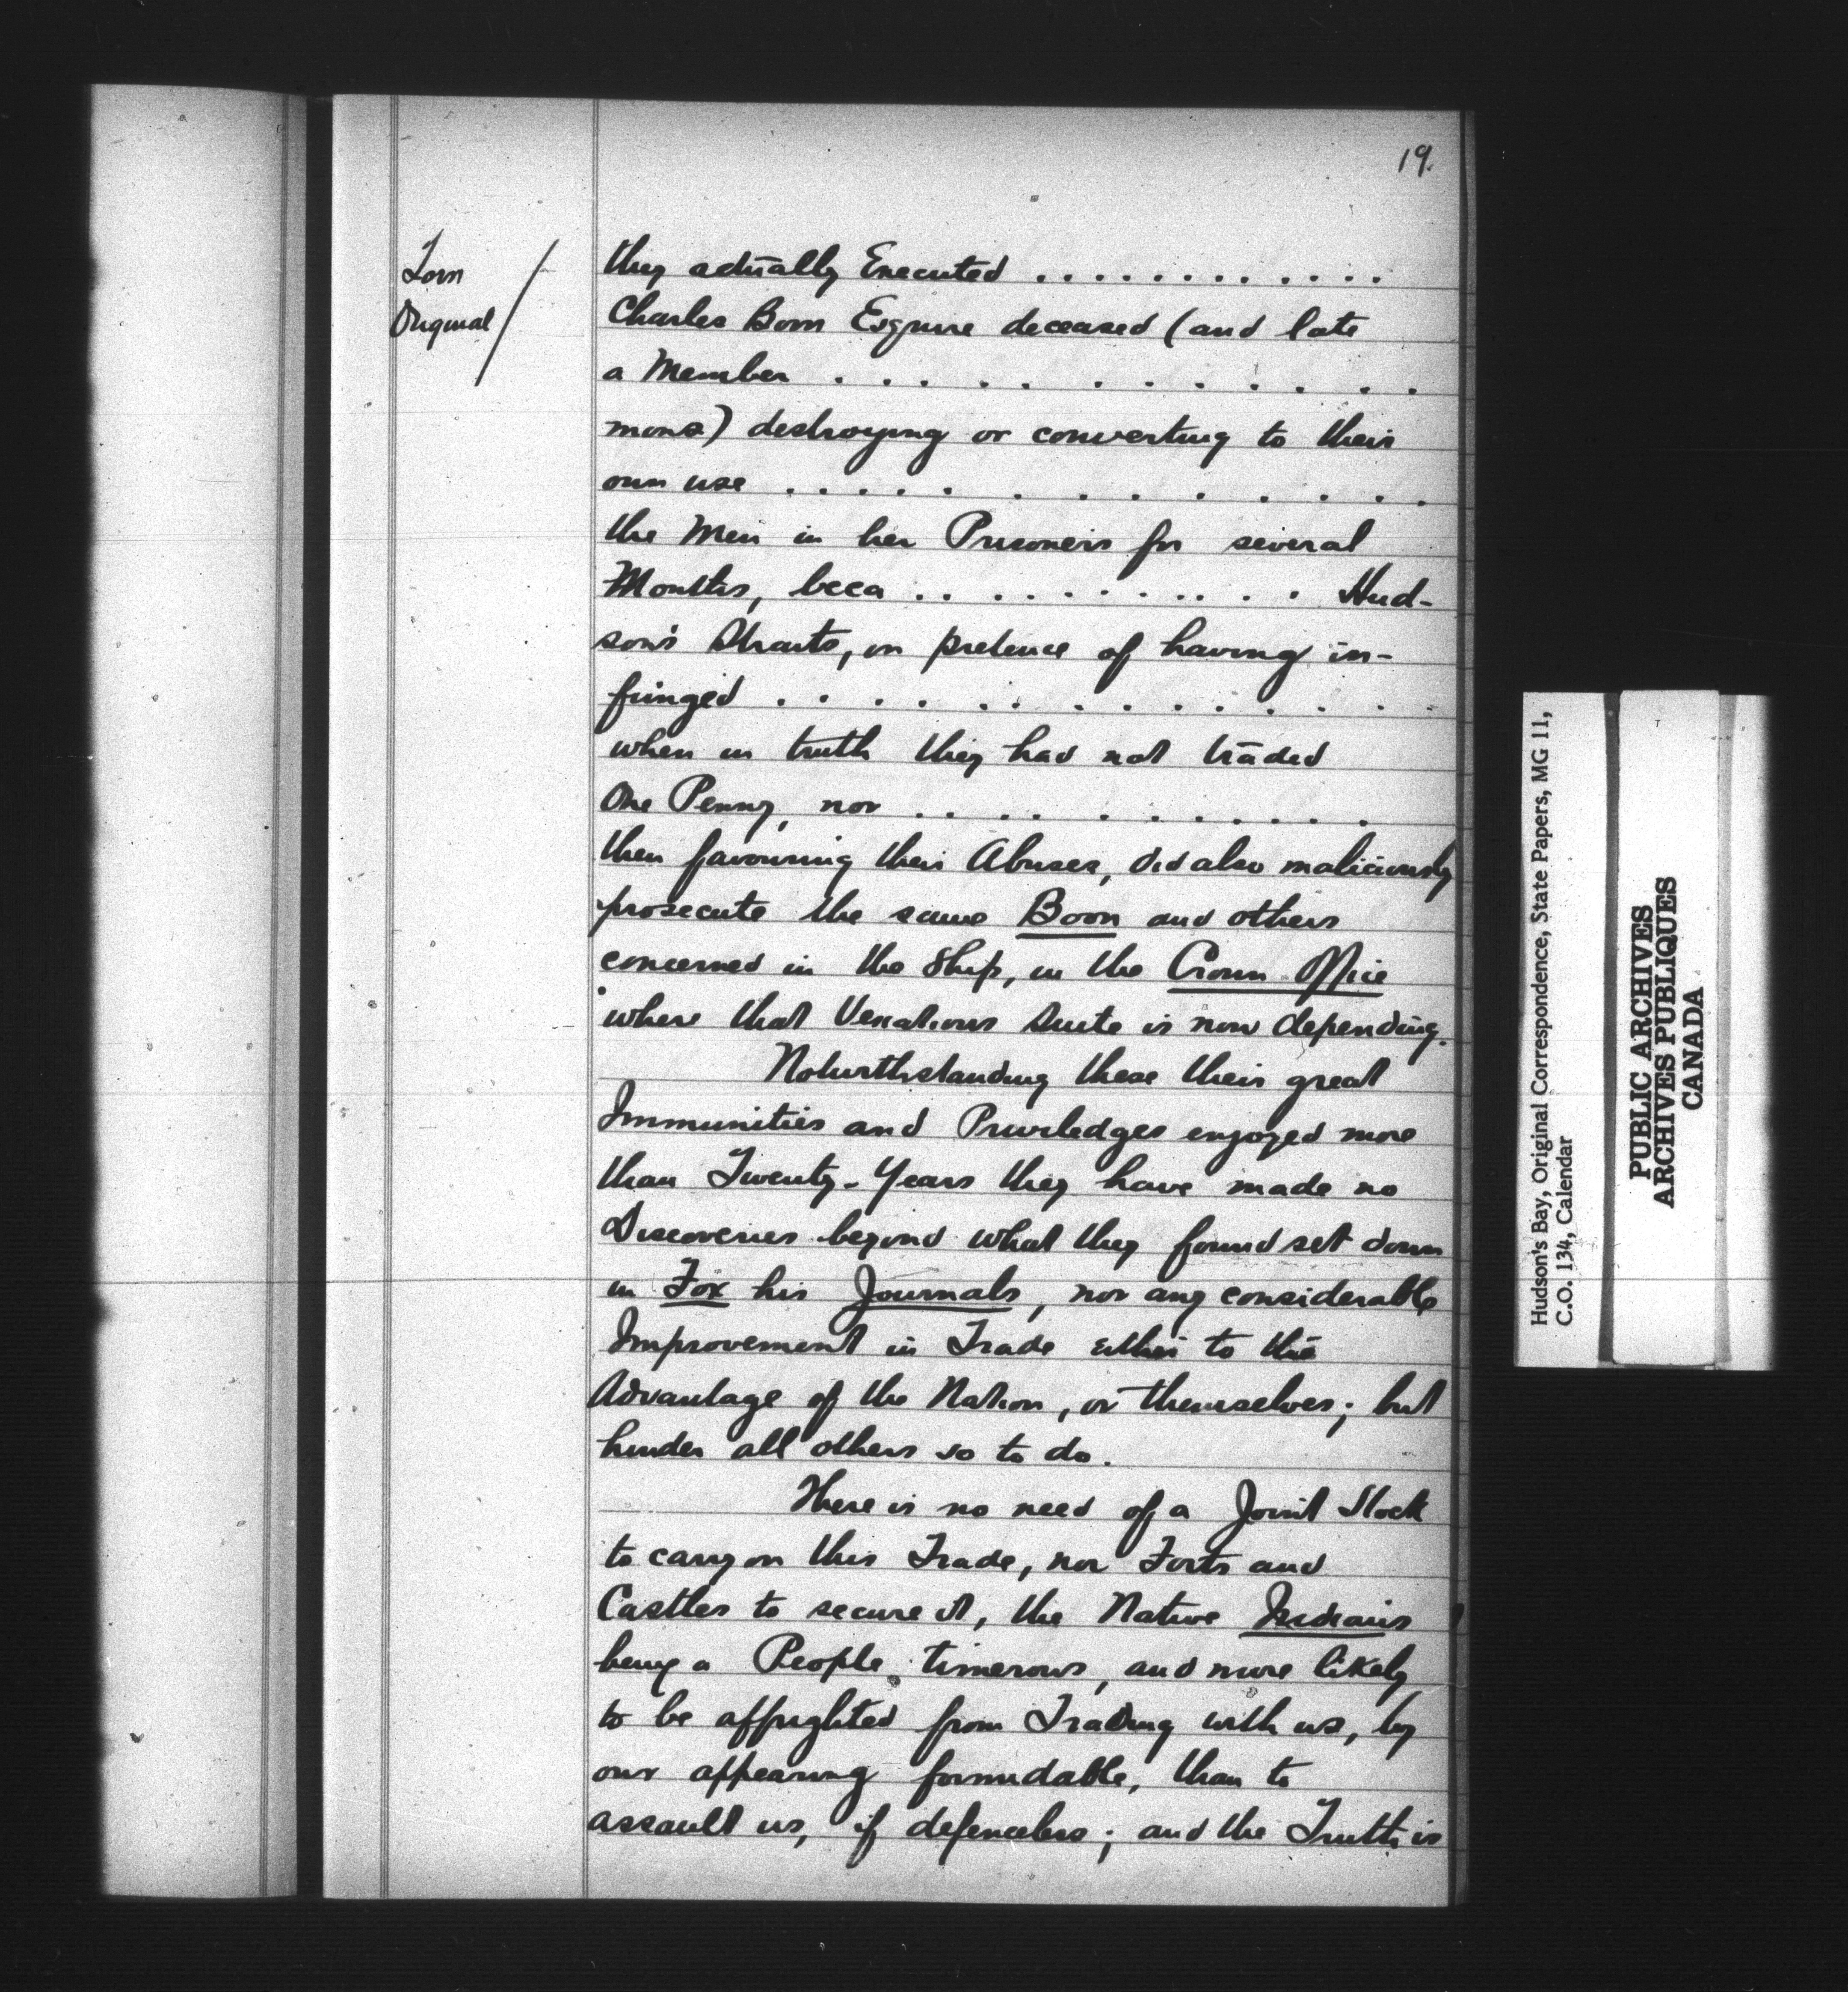 19.
Torn
Original
they actually Executed . . . . . . . . . . . .
Charles Boon Esquire deceased (and late
a Member . . . . . . . . . . . .
mons) destroying or converting to their
own use . . . . . . . . . . . . .
the Men in her Prisoners for several
Months, beca . . . . . . . . . . . Hud-
son's Straits, on pretence of having in-
fringed . . . . . . . . . . . . . .
when in truth they had not traded
One Penny, nor . . . . . . . . . . .
then favouring their Abuses, did also maliciously
prosecute the same Boon and others
concerned in the Ship, in the Crown Office
where that Vexatious Suite is now depending.
Notwithstanding these their great
Immunities and Priviledges enjoyed more
than Twenty-Years they have made no
Discoveries beyond what they found set down
in Fox his Journals, nor any considerable
Improvement in Trade either to the
Advantage of the Nation, or themselves; but
hinder all others so to do.
There is no need of a Joint Stock
to carry on this Trade, nor Forts and
Castles to secure it, the Native Indians
being a People timerous, and more likely
to be affrighted from Trading with us, by
our appearing formidable, than to
assault us, if defenceless; and the Truth is
Hudson's Bay, Original Correspondence, State Papers, MG 11,
C.O. 134, Calendar
PUBLIC ARCHIVES
ARCHIVES PUBLIQUES
CANADA